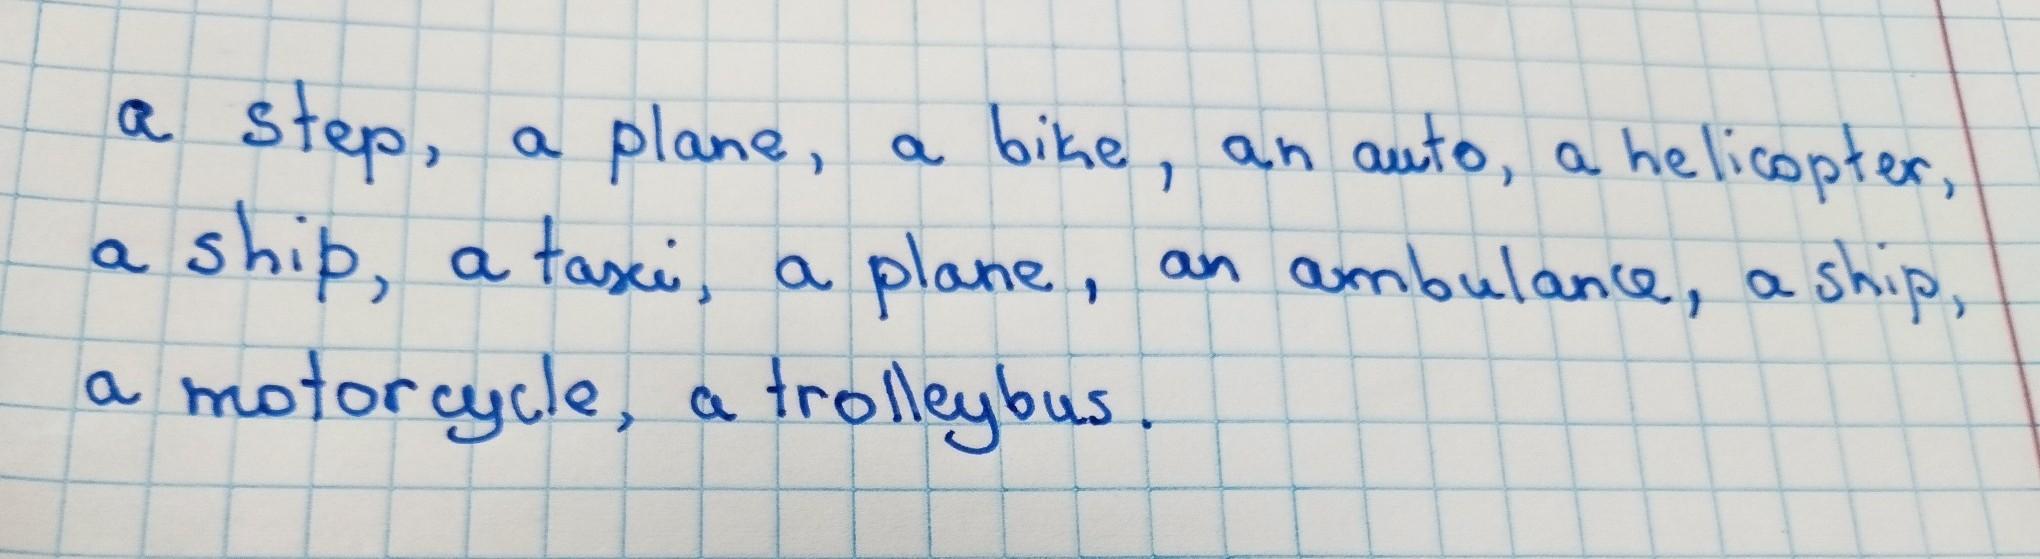 a step, a plane, a bike, an auto, a helicopter,
a ship, a taxi, a plane, an ambulance, a ship,
a motorcycle, a trolleybus.